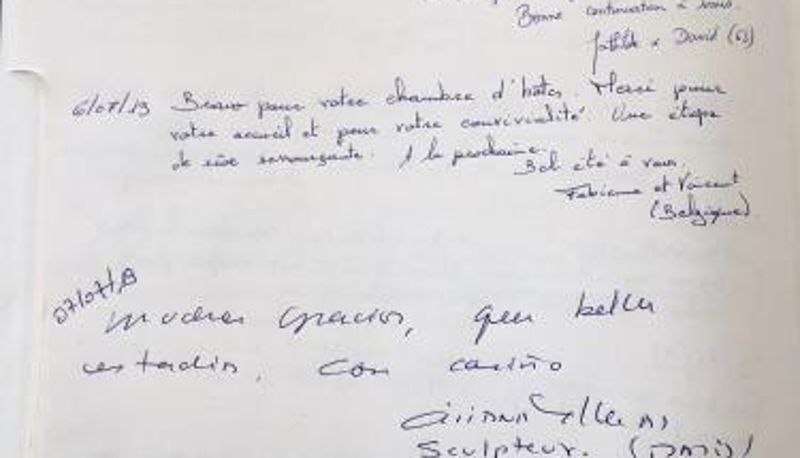 Bonne continuation à vous.
David (62)
6/07/13 Bravo pour votre chambre d'hôtes. Merci pour
votre accueil et pour votre convivialité. Une étape
de rêve rassurgente. A la prochaine.
Bel été à vous.
Fabienne et Vincent
(Belgique)
07/07/13
muchas gracias, que bella
estadia, con cariño
Sculpteur. (PARIS)